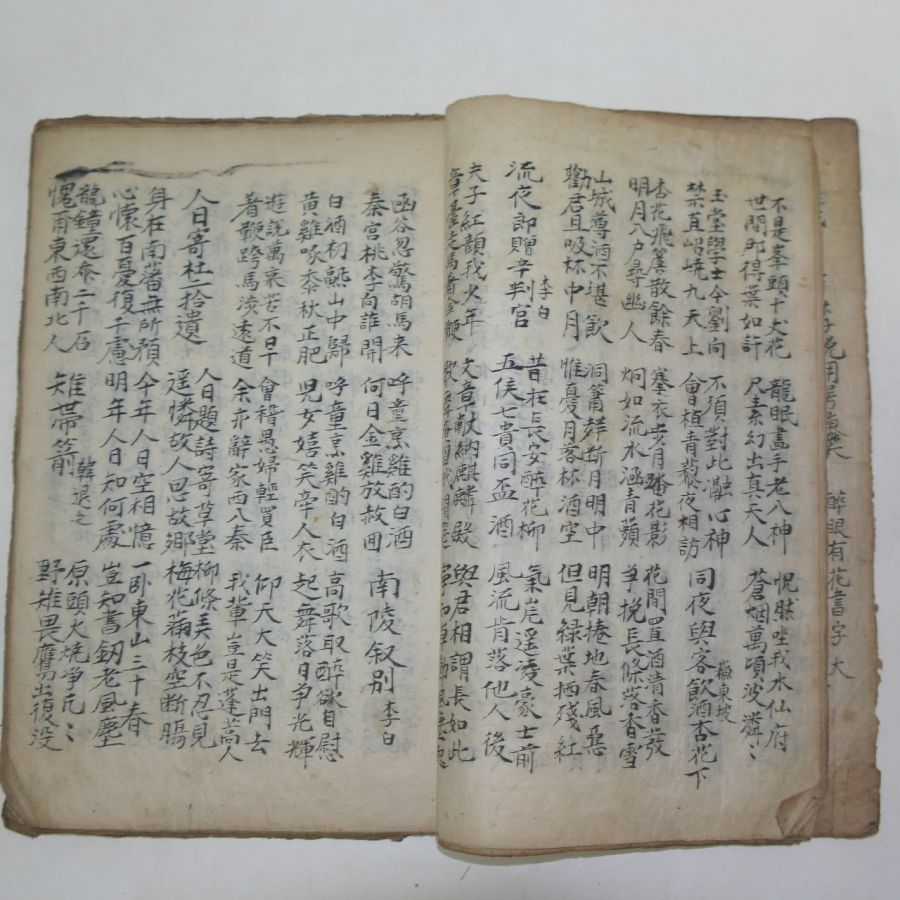 醉眼有花書字大
不是峯頭十丈花
世間那得葉如許
龍眠畵手老入神
尺素幻出真天人
怳然坐我水仙府
蒼烟萬頃波粼〻
玉堂學士今劉向
禁直岧嶢九天上
不須對此融心神
會植青藜夜相訪
同夜與客飮酒杏花下
蘇東坡
杏花飛簾散餘春
明月入户尋幽人
褰衣步月踏花影
炯如流水涵青蘋
花間置酒清香發
爭挽長條落香雪
山城薄酒不堪飲
勸君且吸杯中月
洞簫聲断月明中
惟憂月落杯酒空
明朝捲地春風惡
但見緑葉栖殘紅
流夜郎贈辛判官
李白
昔在長安醉花柳
五侯七貴同盃酒
氣岸遥凌豪士前
風流肯落他人後
夫子紅顔我少年
章臺走馬着金鞭
文章献納麒麟殿
與君相謂長如此
函谷忽驚胡馬来
秦宮桃李向誰開
呼童烹雞酌白酒
何日金雞放赦回
南陵叙别
李白
白酒初熟山中歸
黄雞啄黍秋正肥
呼童烹雞酌白酒
兒女嬉笑牽人衣
高歌取醉欲自慰
起舞落日爭光輝
遊説萬乘苦不早
着鞭跨馬涉遠道
會稽愚婦輕買臣
余亦辭家西入秦
仰天大笑出門去
我輩豈是蓬蒿人
人日寄杜二拾遺
人日題詩寄草堂
遥憐故人思故郷
柳條美色不忍見
梅花滿枝空断腸
身在南藩無所預
心懷百憂復千慮
今年人日空相憶
明年人日知何處
一卧東山三十春
豈知書釼老風塵
龍鐘還忝二千石
愧爾東西南北人
雉帶箭
韓退之
原頭火燒净兀〻
野雉畏鷹出復没